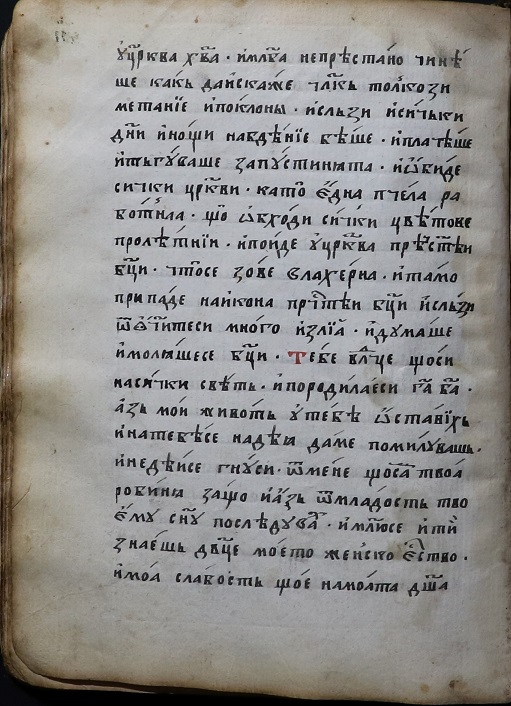 ѹ҆цр҃ква хв҃а · и҆мл҃ва непрѣста́но чинѣ́
ше ка́кь да и҆ска́же чл҃кь то́лкози
мета́нїе и҆покло́ны · и҆сльзи и҆си́чьки
дн҃и и҆но́щи на бдѣ́нїе бѣ́ше · и҆пла́тѣше
и҆тьгꙋ́ваше запꙋстиннѧта · и҆ѡ҆би́де
сички цр҃кви · като̀ є҆дна пчела̀ ра
бо́тнаа · що̀ ѡ҆бхо́ди си́чки цвѣ́тове
пролѣ́тнїи · и҆по́иде ѹ҆цр҃ква прѣст҃ѣи
бц҃и · что̀се зо́ве влахе́рна · и҆та́мо
припа́де на и҆ко́на прч҃тѣи бц҃и и҆сльзи
ѿѻ҆чи́итеси мно́го и҆злїа̀ · и҆дꙋма́ше
и҆молѧ́шесе бц҃и · Те́бе вл҃це що́си
наси́чки свѣ́ть · и҆породи́ла є҆си гд҃а ба҃ ·
а҆зь мои живо́ть ѹ҆ те́бѣ ѡ҆ста́вїхь
и҆на те́бѣ се надѣ́ꙗ да ме поми́лꙋвашь ·
и҆не дѣ́исе гнꙋ́си · ѿме́не що́са твоа̀
роби́нꙗ за́що и҆а҆зь ѿмла́дость тво
е҆мꙋ сн҃ꙋ послѣ́дꙋва · и҆мл҃юсе и҆ тѝ
зна́ешь дв҃це мое́то же́нско є҆ство ·
и҆моа̀ сла́бость що́е на моа́та дш҃а